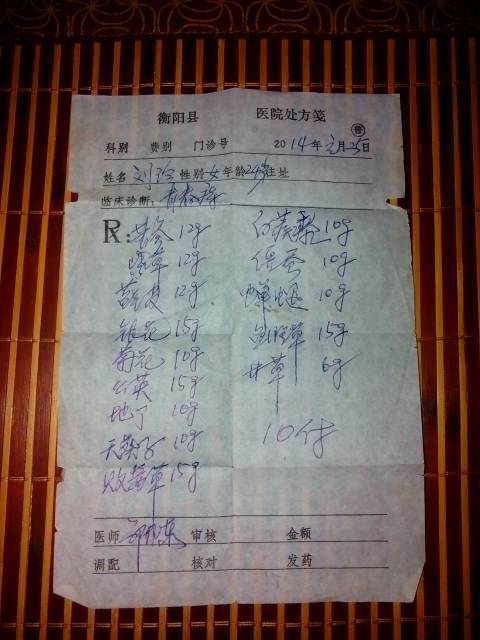 衡阳县 医院处方笺
普
科别 费别 门诊号 2014年元月25日
姓名 刘 性别女年龄24岁住址
临床诊断:
R:黄芩 12g 白蒺藜 10g
草 12g 僵蚕 10g
皮 12g 蝉退 10g
银花 15g 草 15g
菊花 10g 甘草 6g
公英 15g
地丁 10g 10付
天葵子 10g
败酱草 15g
医师 审核 金额
调配 核对 发药